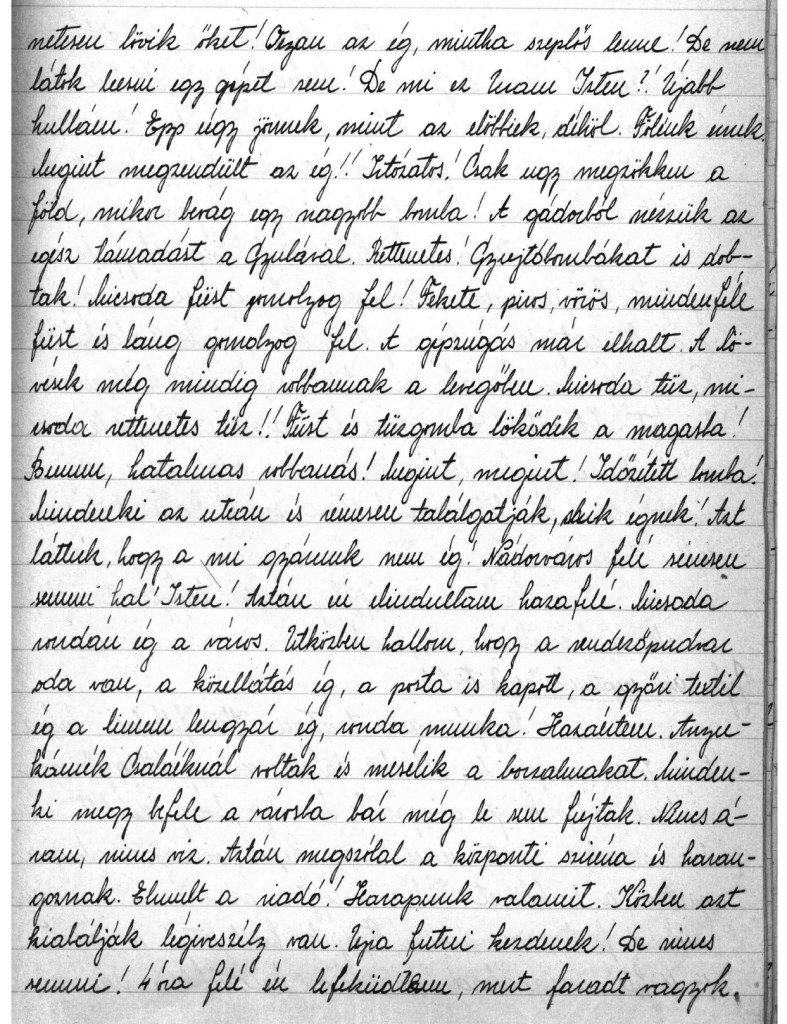 netesen lövik őket! Olyan az ég, mintha szeplős lenne! De nem
látok leesni egy gépet sem! De mi ez Uram Isten?! Ujabb
hullám! Épp úgy jönnek, mint az előbbiek, délről. Fölénk érnek.
Megint megzendült az ég!! Iszto­zatos! Csak ugy megzökken a
föld, mikor bevág egy nagyobb bomba! A gádorból nézzük az
egész támadást a Gyulával. Rettenetes! Gyujtóbombákat is dob-
tak! Micsoda füst gomolyog fel! Fekete, piros, vörös, mindenféle
füst és láng gomolyog fel. A gépzúgás már elhalt. A lö-
vések még mindig robbannak a levegőben. Micsoda tüz, mi-
csoda rettenetes tüz!! Füst és tüzgomba lökődik a magasba!
Bumm, hatalmas robbanás! Megint, megint! Időzített bomba!
Mindenki az utcán és rémesen találgatják, mik égnek! Azt
láttuk, hogy a mi gyárunk nem ég! Nádorváros felé rémesen
semmi baj! Isten! Aztán én elindultam hazafelé. Micsoda
rondán ég a város. Utközben hallom, hogy a rendezőpudvar
oda van, a közellátás ég, a posta is kapott, a győri textil
ég a limem lengyár ég, ronda munka! Hazaértem. Anyu-
kámék Csaláéknál voltak és mesélik a borzalmakat. Minden-
ki megy befele a városba bár még le sem fújtak. Nincs á-
ram, nincs viz. Aztán megszólal a központi sziréna és haran-
goznak. Elmult a riadó! Harapunk valamit. Közben azt
kiabálják légiveszély van. Ujra futni kezdenek! De nincs
semmi! 4 óra felé én lefeküdtem, mert fáradt vagyok.